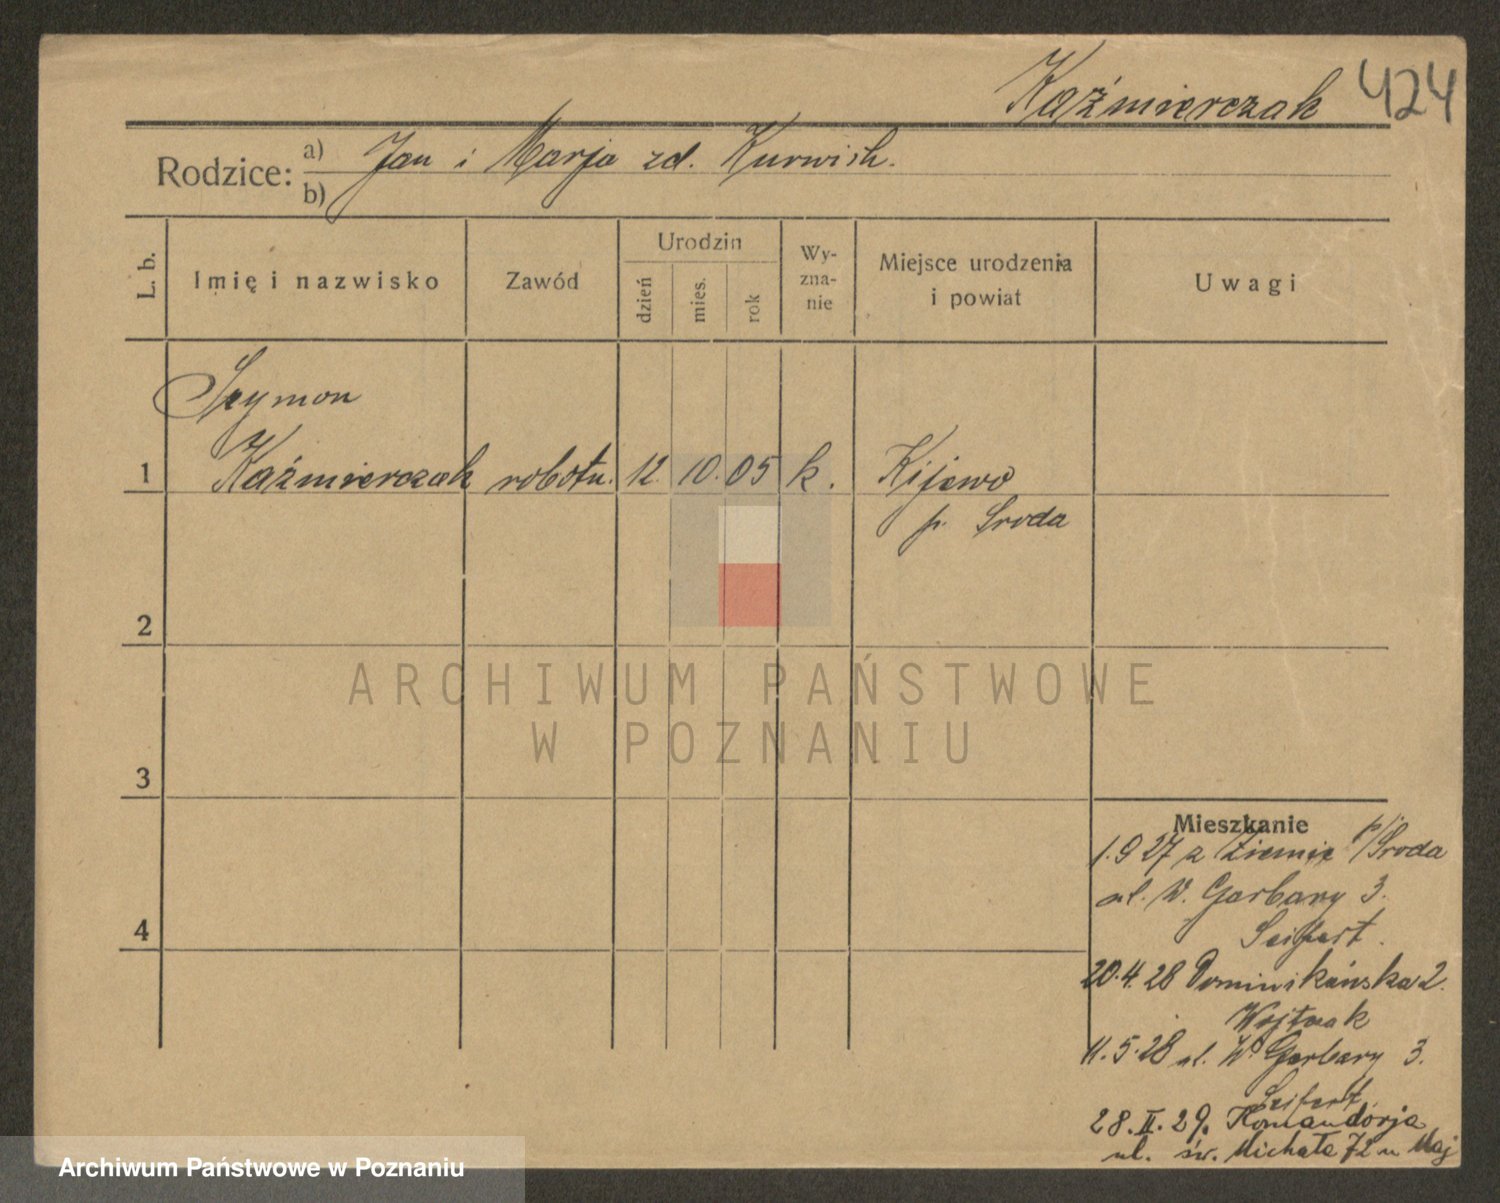 Kaźmierczak 424
Rodzice: a) Jan i Marja zd. Kurwich.
b)
L. b. Imię i nazwisko Zawód Urodzin dzień mies. rok Wy-zna-nie Miejsce urodzenia i powiat Uwagi
Szymon
1 Kaźmierczak robotn. 12. 10. 05 k. Kijewo
p. Sroda
2
3
4
ARCHIWUM PAŃSTWOWE
W POZNANIU
Mieszkanie
1.9 27 z p/Sroda
ul. W. Garbary 3.
Seifert.
20.4.28 Dominikańska 2.
Wojtczak
11.5.28 ul. W. Garbary 3.
Seifert.
28.II.29. Komandorja
ul. św. Michała 72 u Maj
Archiwum Państwowe w Poznaniu